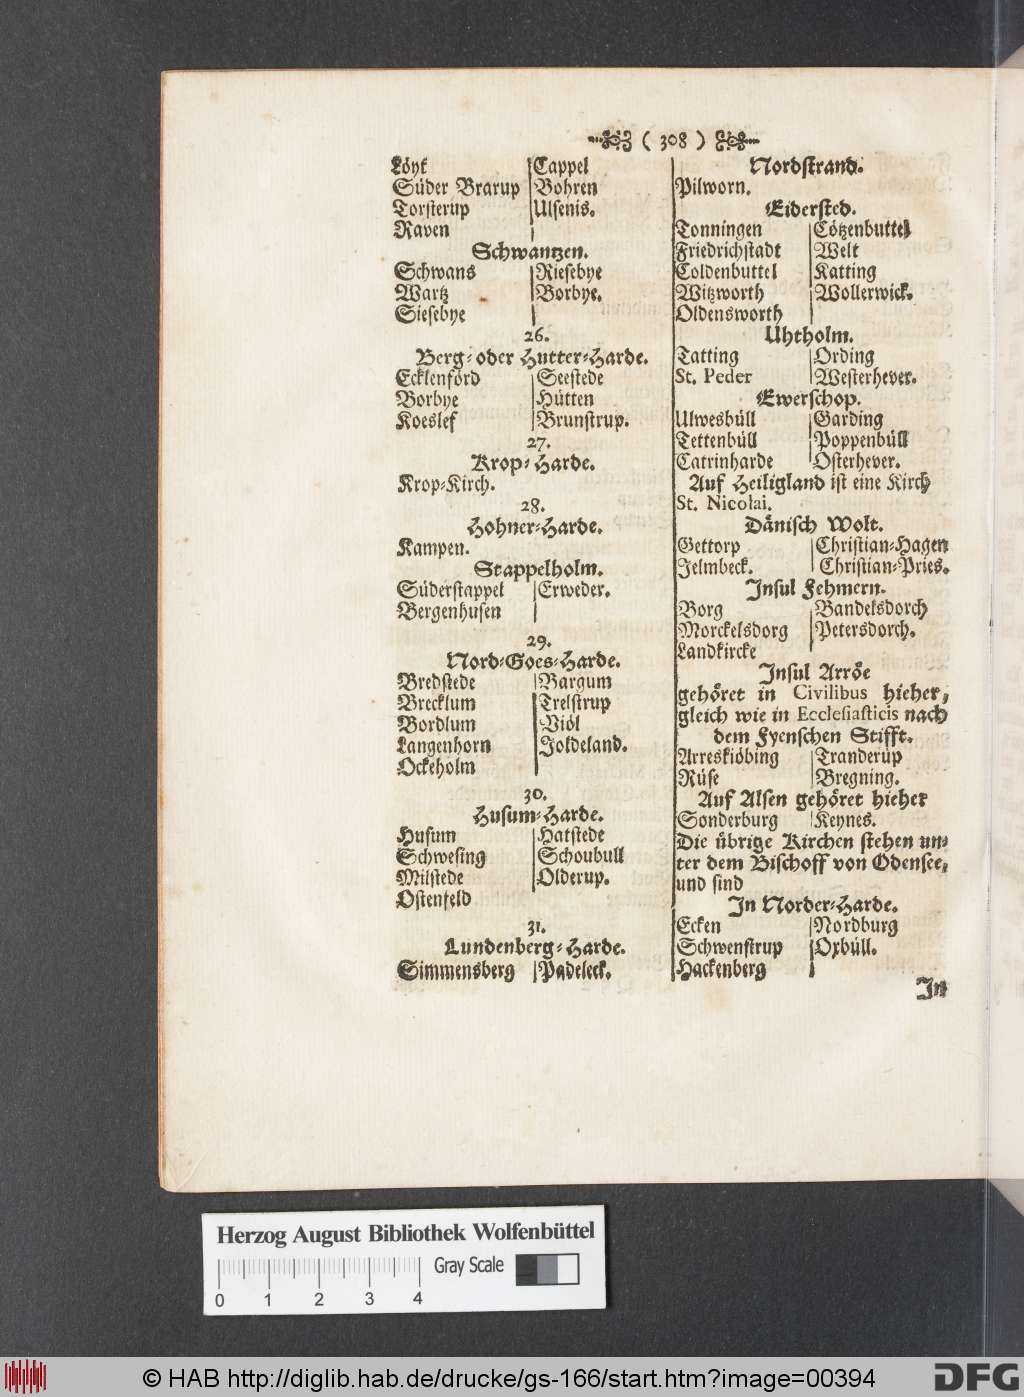 ( 308 )
Löyt Cappel
Süder Brarup Bohren
Torsterup Ulsenis.
Raven
Schwantzen.
Schwans Riesebye
Wartz Borbye.
Siesebye
26.
Berg- oder Hutter-Harde.
Ecklenförd Seestede
Borbye Hütten
Koeslef Brunstrup.
27.
Krop-Harde.
Krop-Kirch.
28.
Hohner-Harde.
Kampen.
Stappelholm.
Süderstappel Erweder.
Bergenhusen
29.
Nord-Goes-Harde.
Bredstede Bargum
Brecklum Trelstrup
Bordlum Viöl
Langenhorn Joldeland.
Ockeholm
30.
Husum-Harde.
Husum Hatstede
Schwesing Schoubull
Milstede Olderup.
Ostenfeld
31.
Lundenberg-Harde.
Simmensberg Padeleck.
Nordstrand.
Pilworn.
Eidersted.
Tonningen Cötzenbuttel
Friedrichstadt Welt
Coldenbuttel Katting
Witzworth Wollerwick.
Oldensworth
Uhtholm.
Tatting Ording
St. Peder Westerhever.
Ewerschop.
Ulwesbüll Garding
Tettenbüll Poppenbüll
Catrinharde Osterhever.
Auf Heiligland ist eine Kirch
St. Nicolai.
Dänisch Wolt.
Gettorp Christian-Hagen
Jelmbeck. Christian-Pries.
Insul Fehmern.
Borg Bandelsdorch
Morckelsdorg Petersdorch.
Landkircke
Insul Arröe
gehöret in Civilibus hieher,
gleich wie in Ecclesiasticis nach
dem Fyenschen Stifft.
Arreskiöbing Tranderup
Rüse Bregning.
Auf Alsen gehöret hieher
Sonderburg Keynes.
Die übrige Kirchen stehen un-
ter dem Bischoff von Odensee,
und sind
In Norder-Harde.
Ecken Nordburg
Schwenstrup Oxbüll.
Hackenberg
In
Herzog August Bibliothek Wolfenbüttel
Gray Scale
0 1 2 3 4
© HAB http://diglib.hab.de/drucke/gs-166/start.htm?image=00394
DFG